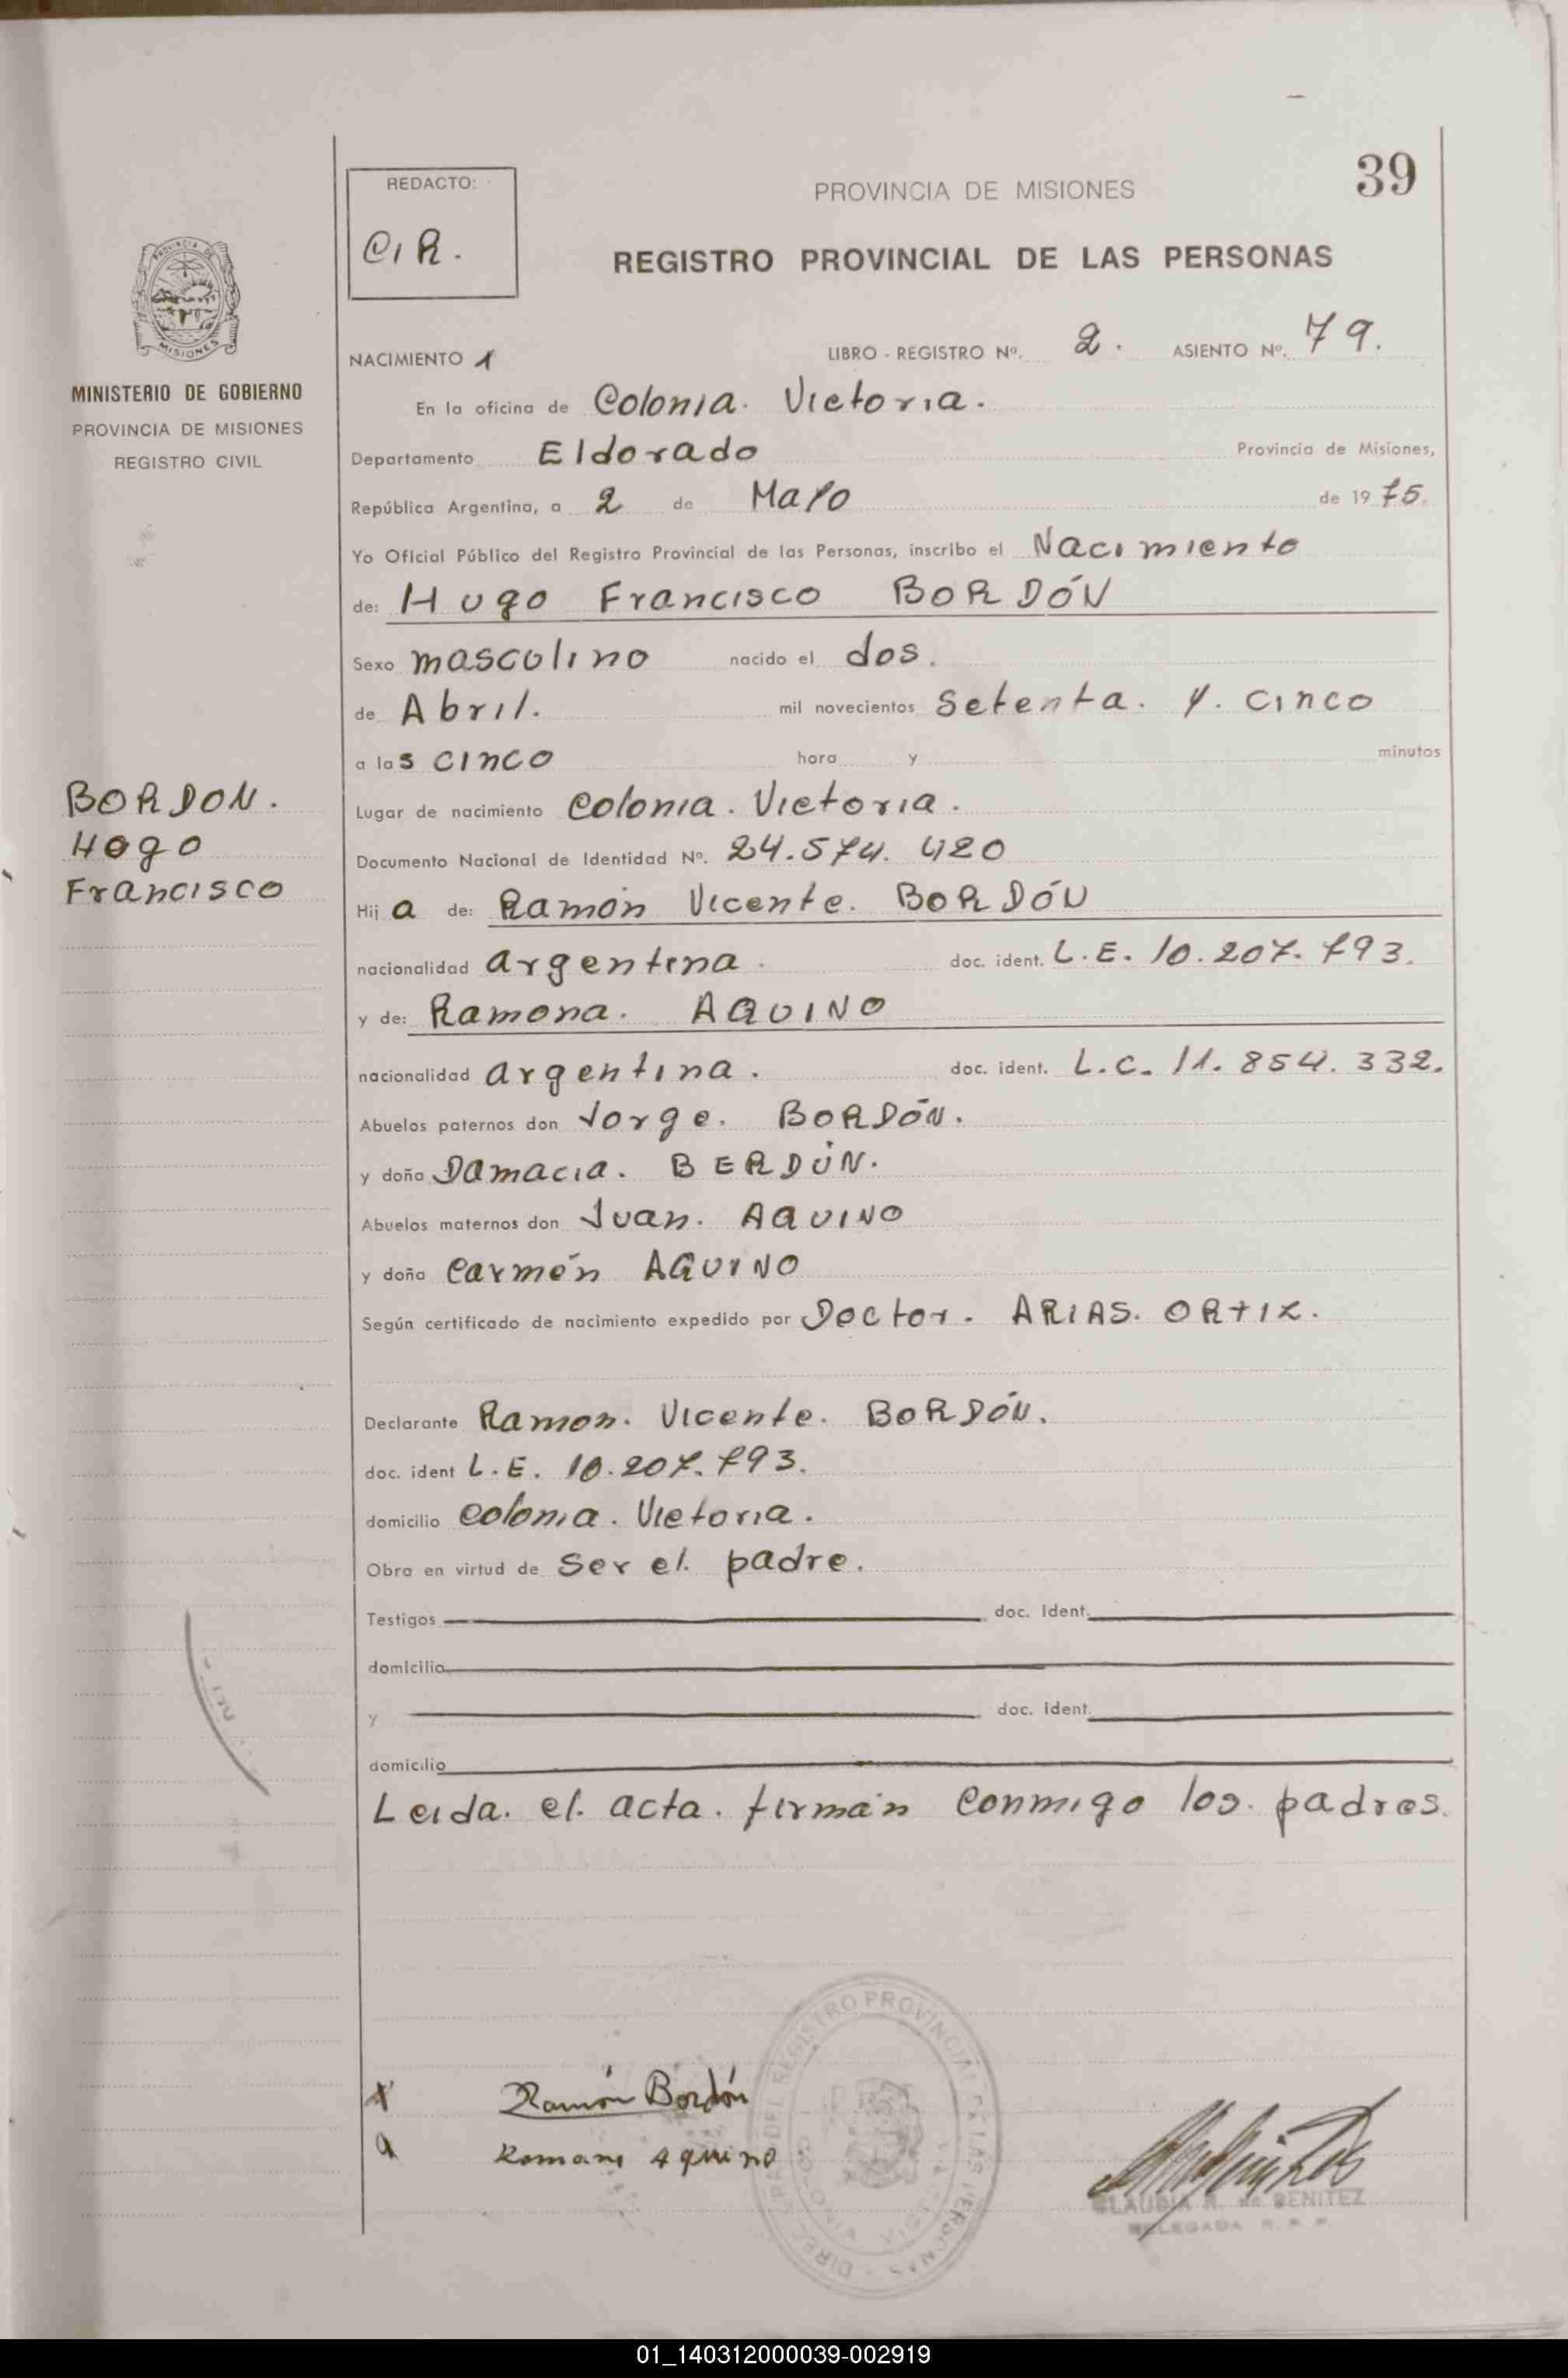 39
REDACTO:
C.I.R.
PROVINCIA DE MISIONES
REGISTRO PROVINCIAL DE LAS PERSONAS
MISIONES
MINISTERIO DE GOBIERNO
PROVINCIA DE MISIONES
REGISTRO CIVIL
NACIMIENTO 1 LIBRO - REGISTRO Nº. 2. ASIENTO Nº. 79.
En la oficina de Colonia. Victoria.
Departamento Eldorado Provincia de Misiones,
República Argentina, a 2 de Mayo de 1975.
Yo Oficial Público del Registro Provincial de las Personas, inscribo el Nacimiento
de: Hugo Francisco BORDÓN
Sexo masculino nacido el dos.
de Abril. mil novecientos Setenta. y. cinco
a las cinco hora y minutos
BORDON.
Hugo
Francisco
Lugar de nacimiento Colonia. Victoria.
Documento Nacional de Identidad Nº. 24.574.420
Hij a de: Ramón Vicente. BORDÓN
nacionalidad argentina. doc. ident. L.E. 10.207.793.
y de: Ramona. AQUINO
nacionalidad argentina. doc. ident. L.C. 11.854.332.
Abuelos paternos don Jorge. BORDÓN.
y doña Damacia. BERDÚN.
Abuelos maternos don Juan. AQUINO
y doña Carmén AQUINO
Según certificado de nacimiento expedido por Doctor. ARIAS. ORTIZ.
Declarante Ramon. Vicente. BORDÓN.
doc. ident L.E. 10.207.793.
domicilio Colonia. Victoria.
Obra en virtud de Ser el. padre.
Testigos doc. ident.
domicilio
y doc. ident.
domicilio
Leida. el. acta. firmán conmigo los. padres.
Ramón Bordón
Romana Aquino
DIREC. GRAL. DEL REGISTRO PROVINCIAL DE LAS PERSONAS
CLAUDIA R. de BENITEZ
DELEGADA R. P. P.
01_140312000039-002919